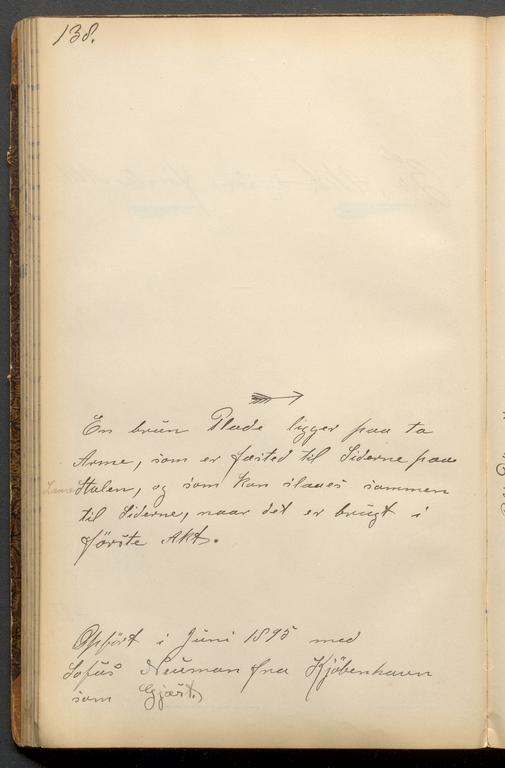 138.
En brun Plade ligger paa to
Arme, som er fæsted til Siderne paa
Stolen, og som kan slaaes sammen
til Siderne, naar det er brugt i
første Akt.
Opført i Juni 1895 med
Sofus Neuman fra Kjøbenhavn
som Gjæst.